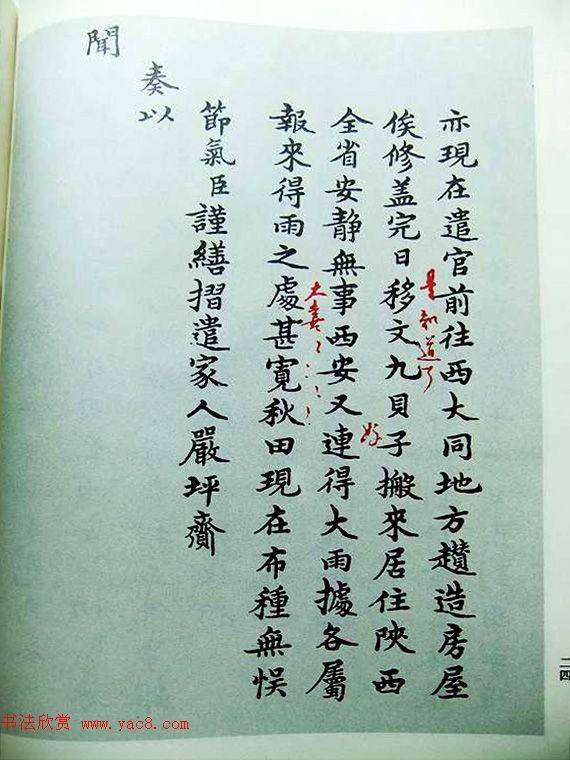 亦現在遣官前往西大同地方趲造房屋
是知道了
俟修盖完日移文九貝子搬來居住陝西
好
全省安靜無事西安又連得大雨據各屬
大喜
報來得雨之處甚寬秋田現在布種無悮
節氣臣謹繕摺遣家人嚴坪齎
奏以
聞
二四
书法欣赏 www.yac8.com